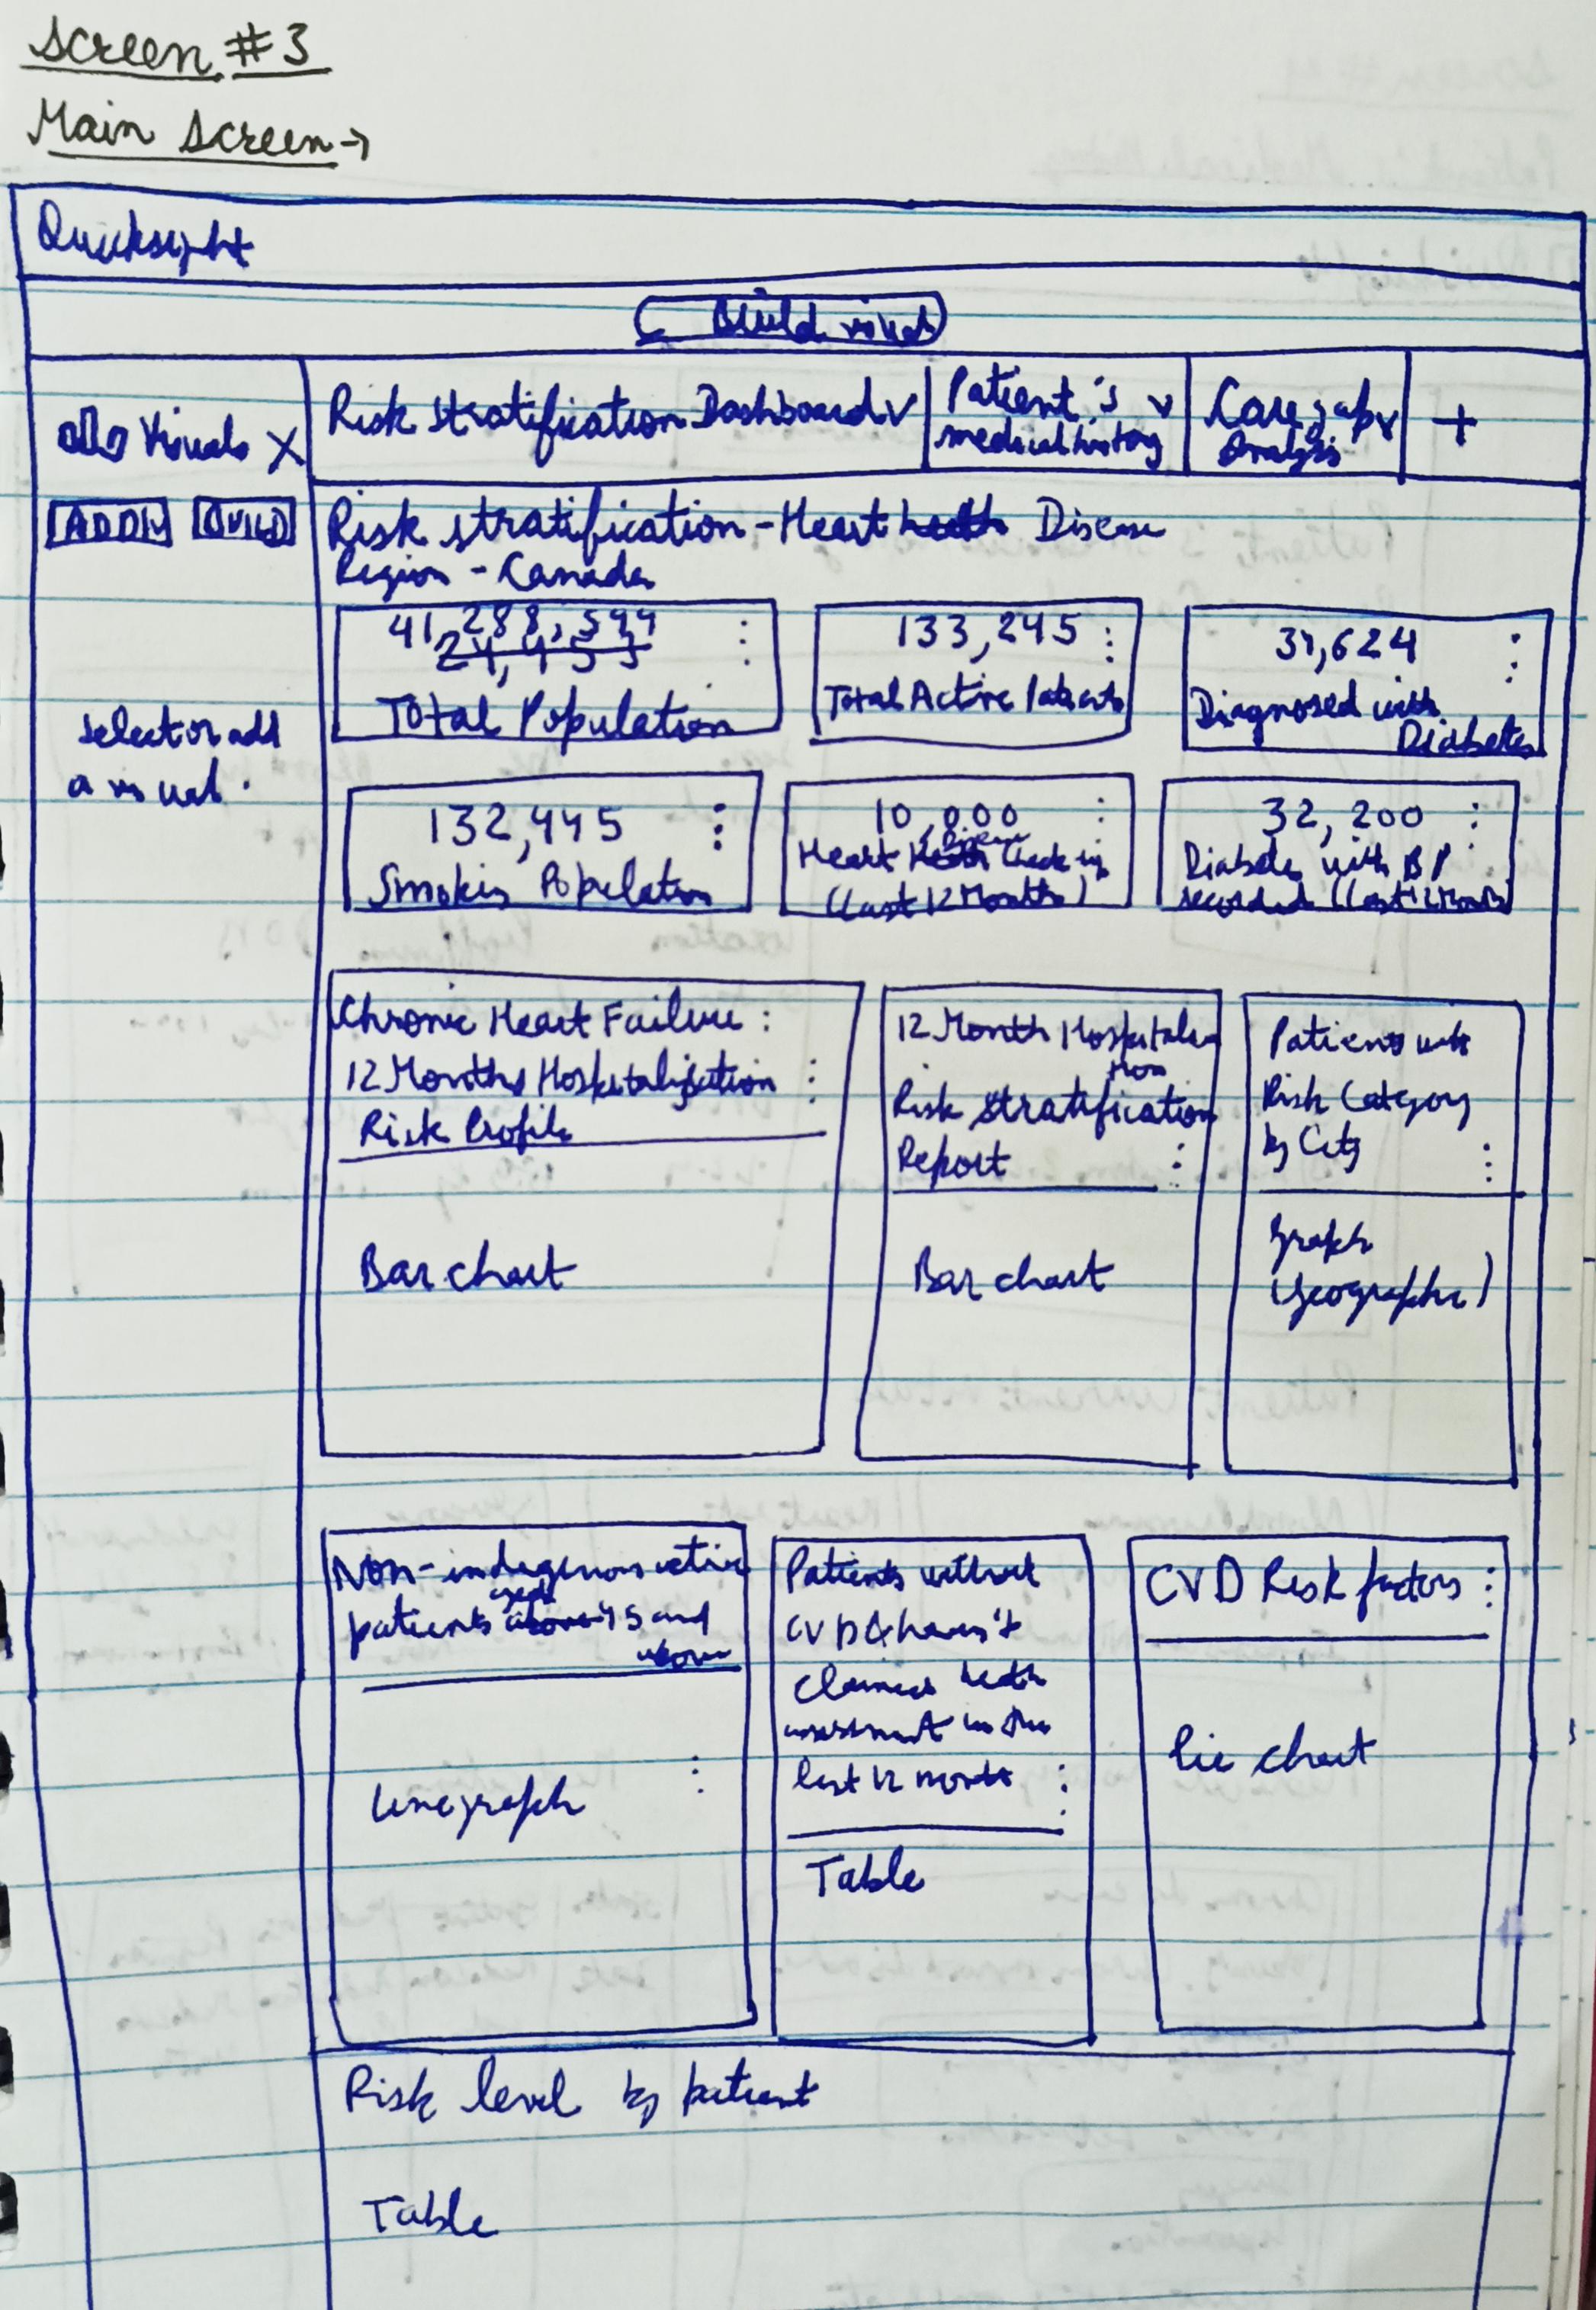 Screen #3
Main Screen →
Quicksight
Build visual
Visuals X
Risk Stratification Dashboard
Patient's
medical history
Care gap
Analysis
+
ADD
BUILD
Risk stratification - Heart health Disease
Region - Canada
select or add
a visual.
41,288,599
24,453
Total Population
133,245
Total Active Patients
34,624
Diagnosed with
Diabetes
132,445
Smoking Population
10,000
Disease
Heart Health Check up
(Last 12 Months)
32,200
Diabetes with BP
recorded (Last 12 Months)
Chronic Heart Failure
12 Months Hospitalization
Risk Profile
Bar chart
12 Month Hospitaliza
tion
Risk Stratification
Report
Bar chart
Patients with
Risk Category
by City
Graph
(Geographic)
Non-indigenous active
aged
patients above 45 and
above
Linegraph
Patients without
CVD & haven't
claimed health
assessment in the
last 12 month
Table
CVD Risk factors
Pie chart
Risk level by patient
Table